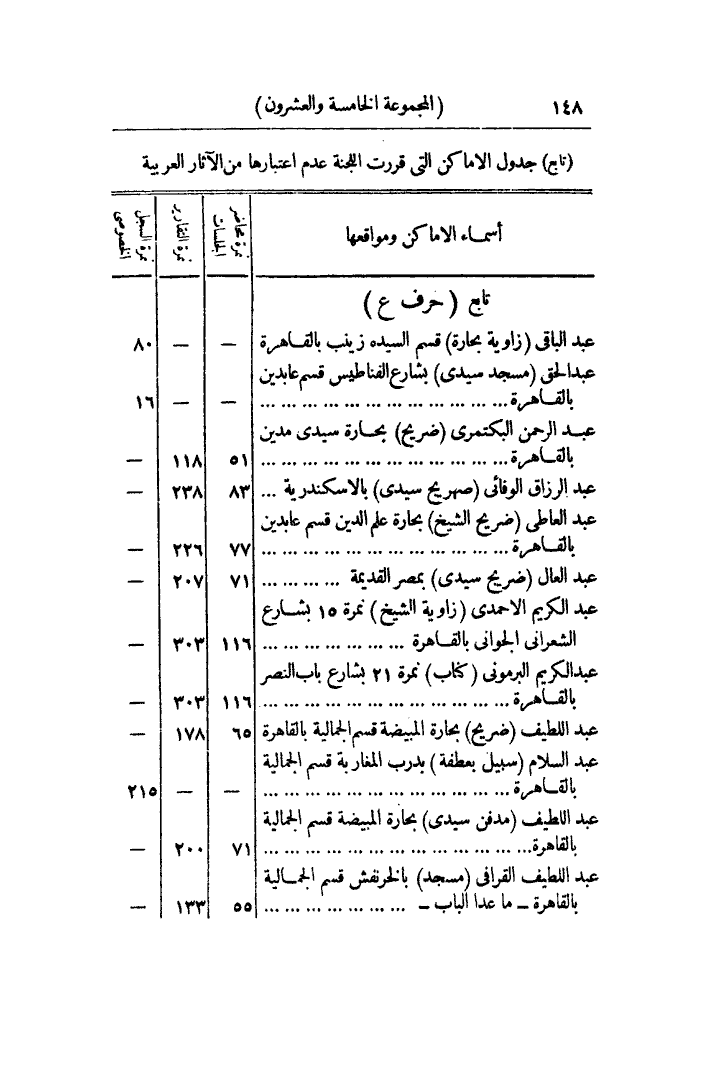 ١٤٨ (المجموعة الخامسة والعشرون)
(تابع) جدول الاماكن التى قررت اللجنة عدم اعتبارها من الآثار العربية
أسماء الاماكن ومواقعها | نمرة محاضر الجلسات | نمرة التقارير | نمرة السجل الخصوصى
تابع (حرف ع)
عبد الباقى (زاوية بحارة) قسم السيده زينب بالقاهرة — — ٨٠
عبدالحق (مسجد سيدى) بشارع الفناطيس قسم عابدين
بالقاهرة ... ... ... ... ... ... ... ... ... ... ... ... — — ١٦
عبد الرحمن البكتمرى (ضريح) بحارة سيدى مدين
بالقاهرة ... ... ... ... ... ... ... ... ... ... ... ... ٥١ ١١٨ —
عبد الرزاق الوفائى (صهريج سيدى) بالاسكندرية ... ٨٣ ٢٣٨ —
عبد العاطى (ضريح الشيخ) بحارة علم الدين قسم عابدين
بالقاهرة ... ... ... ... ... ... ... ... ... ... ... ... ٧٧ ٢٢٦ —
عبد العال (ضريح سيدى) بمصر القديمة ... ... ... ... ٧١ ٢٠٧ —
عبد الكريم الاحمدى (زاوية الشيخ) نمرة ١٥ بشارع
الشعرانى الجوانى بالقاهرة ... ... ... ... ... ... ... ١١٦ ٣٠٣ —
عبدالكريم البرمونى (كتاب) نمرة ٢١ بشارع باب النصر
بالقاهرة ... ... ... ... ... ... ... ... ... ... ... ... ١١٦ ٣٠٣ —
عبد اللطيف (ضريح) بحارة المبيضة قسم الجمالية بالقاهرة ٦٥ ١٧٨ —
عبد السلام (سبيل بعطفة) بدرب المغاربة قسم الجمالية
بالقاهرة ... ... ... ... ... ... ... ... ... ... ... ... — — ٢١٥
عبد اللطيف (مدفن سيدى) بحارة المبيضة قسم الجمالية
بالقاهرة ... ... ... ... ... ... ... ... ... ... ... ... ٧١ ٢٠٠ —
عبد اللطيف القرافى (مسجد) بالخرنفش قسم الجمالية
بالقاهرة – ما عدا الباب – ... ... ... ... ... ... ... ٥٥ ١٣٣ —